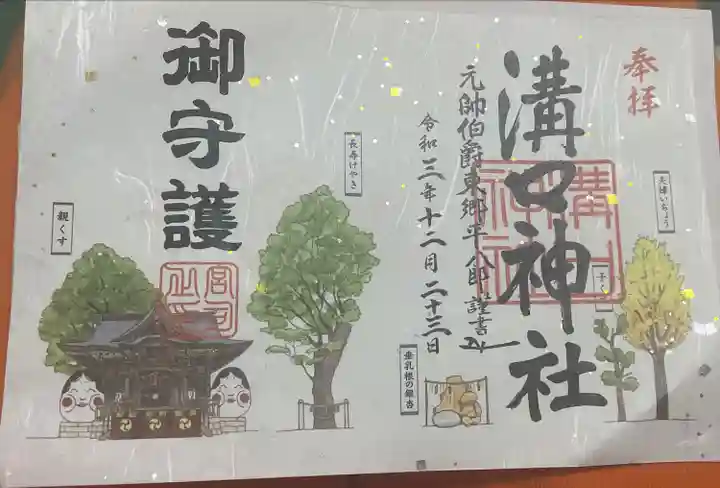 奉拝
夫婦いちょう
溝口神社
溝口神社
元帥伯爵東郷平八郎謹書
令和三年十二月二十三日
垂乳根の銀杏
長寿けやき
御守護
宮司
親くす